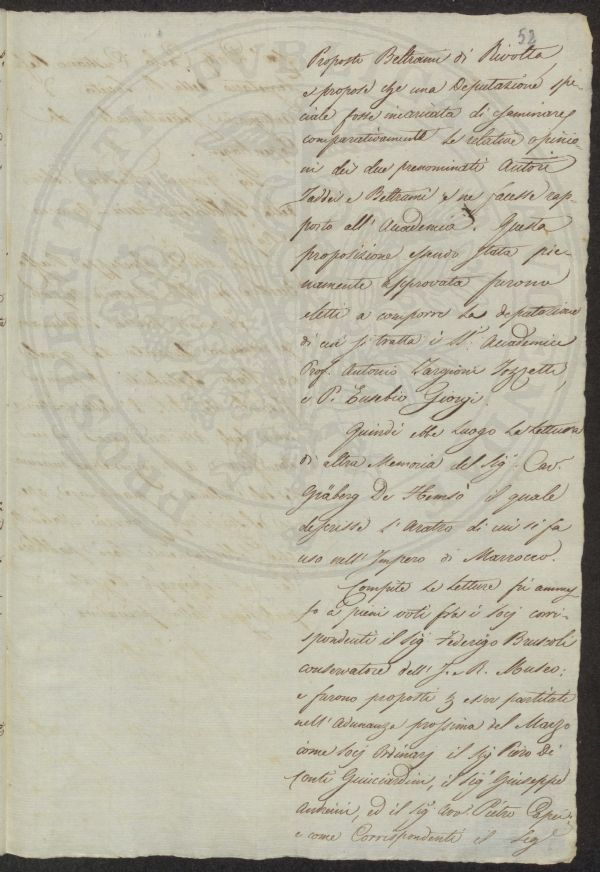 52
Proposto Beltrami di Rivolta,
e propose che una Deputazione spe-
ciale fosse incaricata di esaminare
comparativamente le relative opinio-
ni dei due prenominati Autori
Taddei e Beltrami e ne facesse rap-
porto all'Accademia. Questa
proposizione essendo stata pie-
namente approvata furono
eletti a comporre la deputazione
di cui si tratta i SS.ri Accademici
Prof. Antonio Targioni Tozzetti,
e P. Eusebio Giorgi.
Quindi ebbe luogo la lettura
di altra Memoria del Sig. Cav.
Gräberg De Hemsö il quale
descrisse l'Aratro di cui si fa
uso nell'Impero di Marrocco.
Compite le letture fù ammes
so a pieni voti fra i Socj corri-
spondenti il Sig. Federigo Bruscoli
conservatore dell'I. e R. Museo;
e furono proposti p esser partitati
nell'Adunanza prossima del Marzo
come Socj Ordinarj il Sig. Piero De
Conti Guicciardini, il Sig. Giuseppe
Andreini, ed il Sig. Avv. Pietro
e come Corrispondenti il Sig.